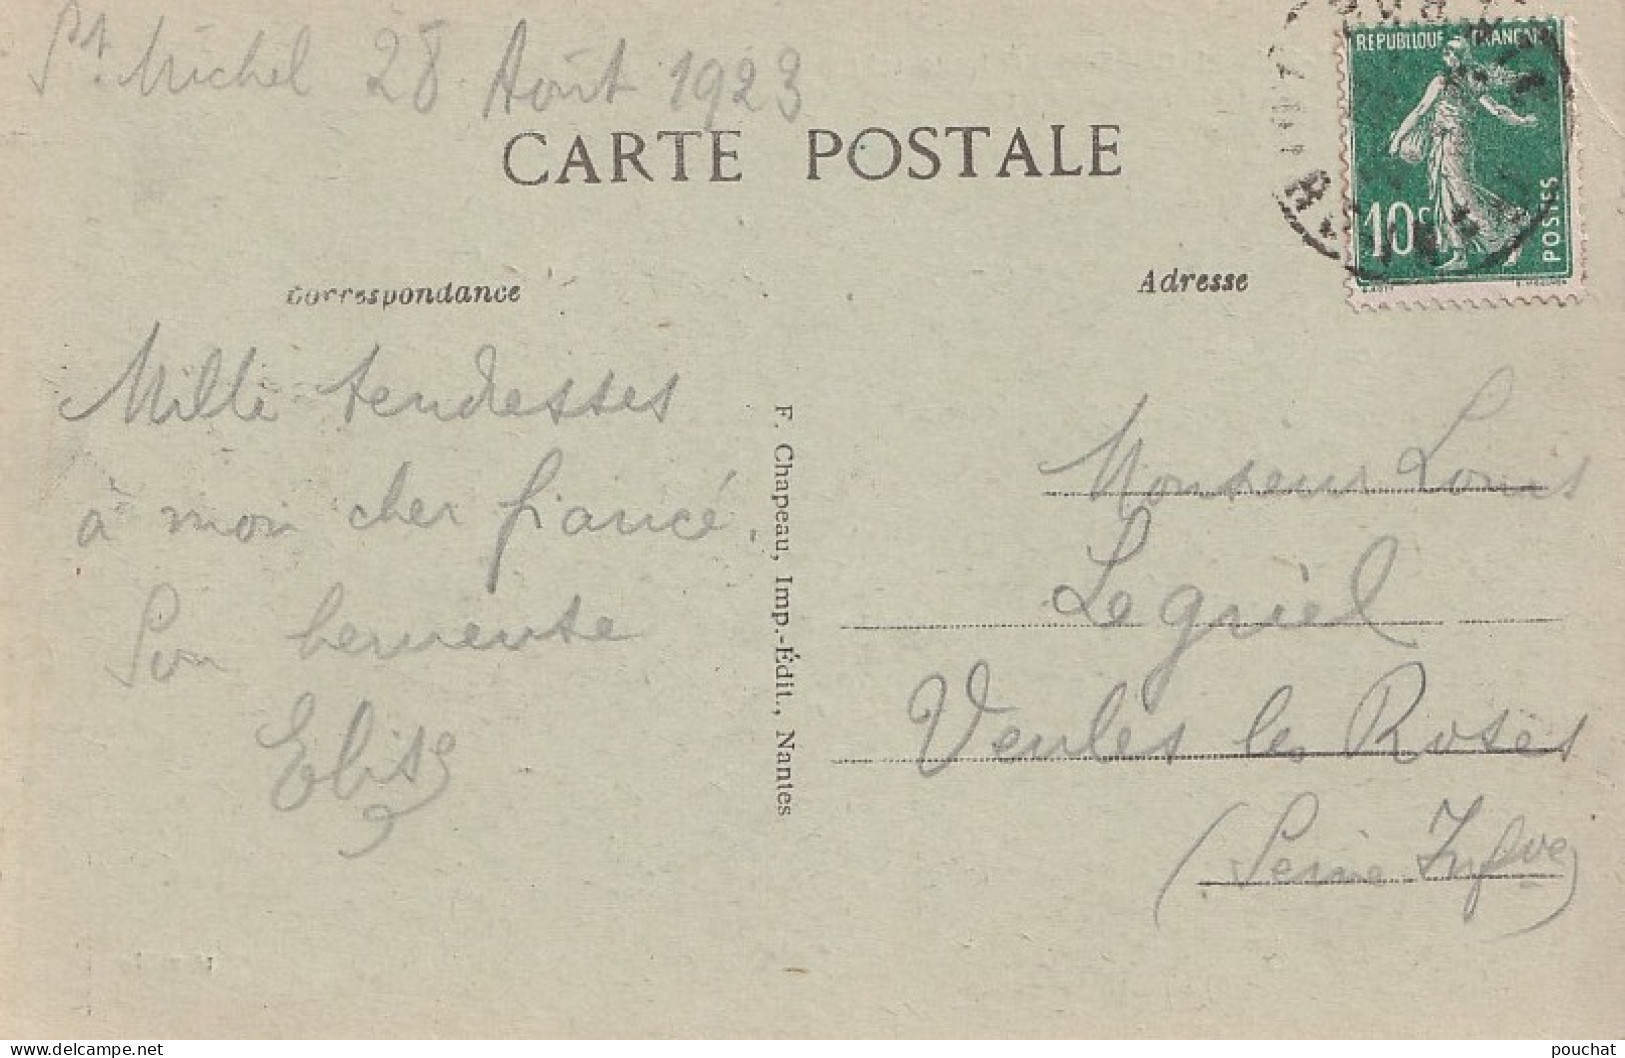 St. Michel 28 Août 1923
REPUBLIQUE FRANÇAISE
10c
POSTES
CARTE POSTALE
Correspondance
Adresse
Mille tendresses
à mon cher fiancé.
Son heureuse
Elise
F. Chapeau, Imp.-Édit., Nantes
Monsieur Louis
Legriel
Veules les Roses
(Seine Infre)
delcampe.net
pouchat